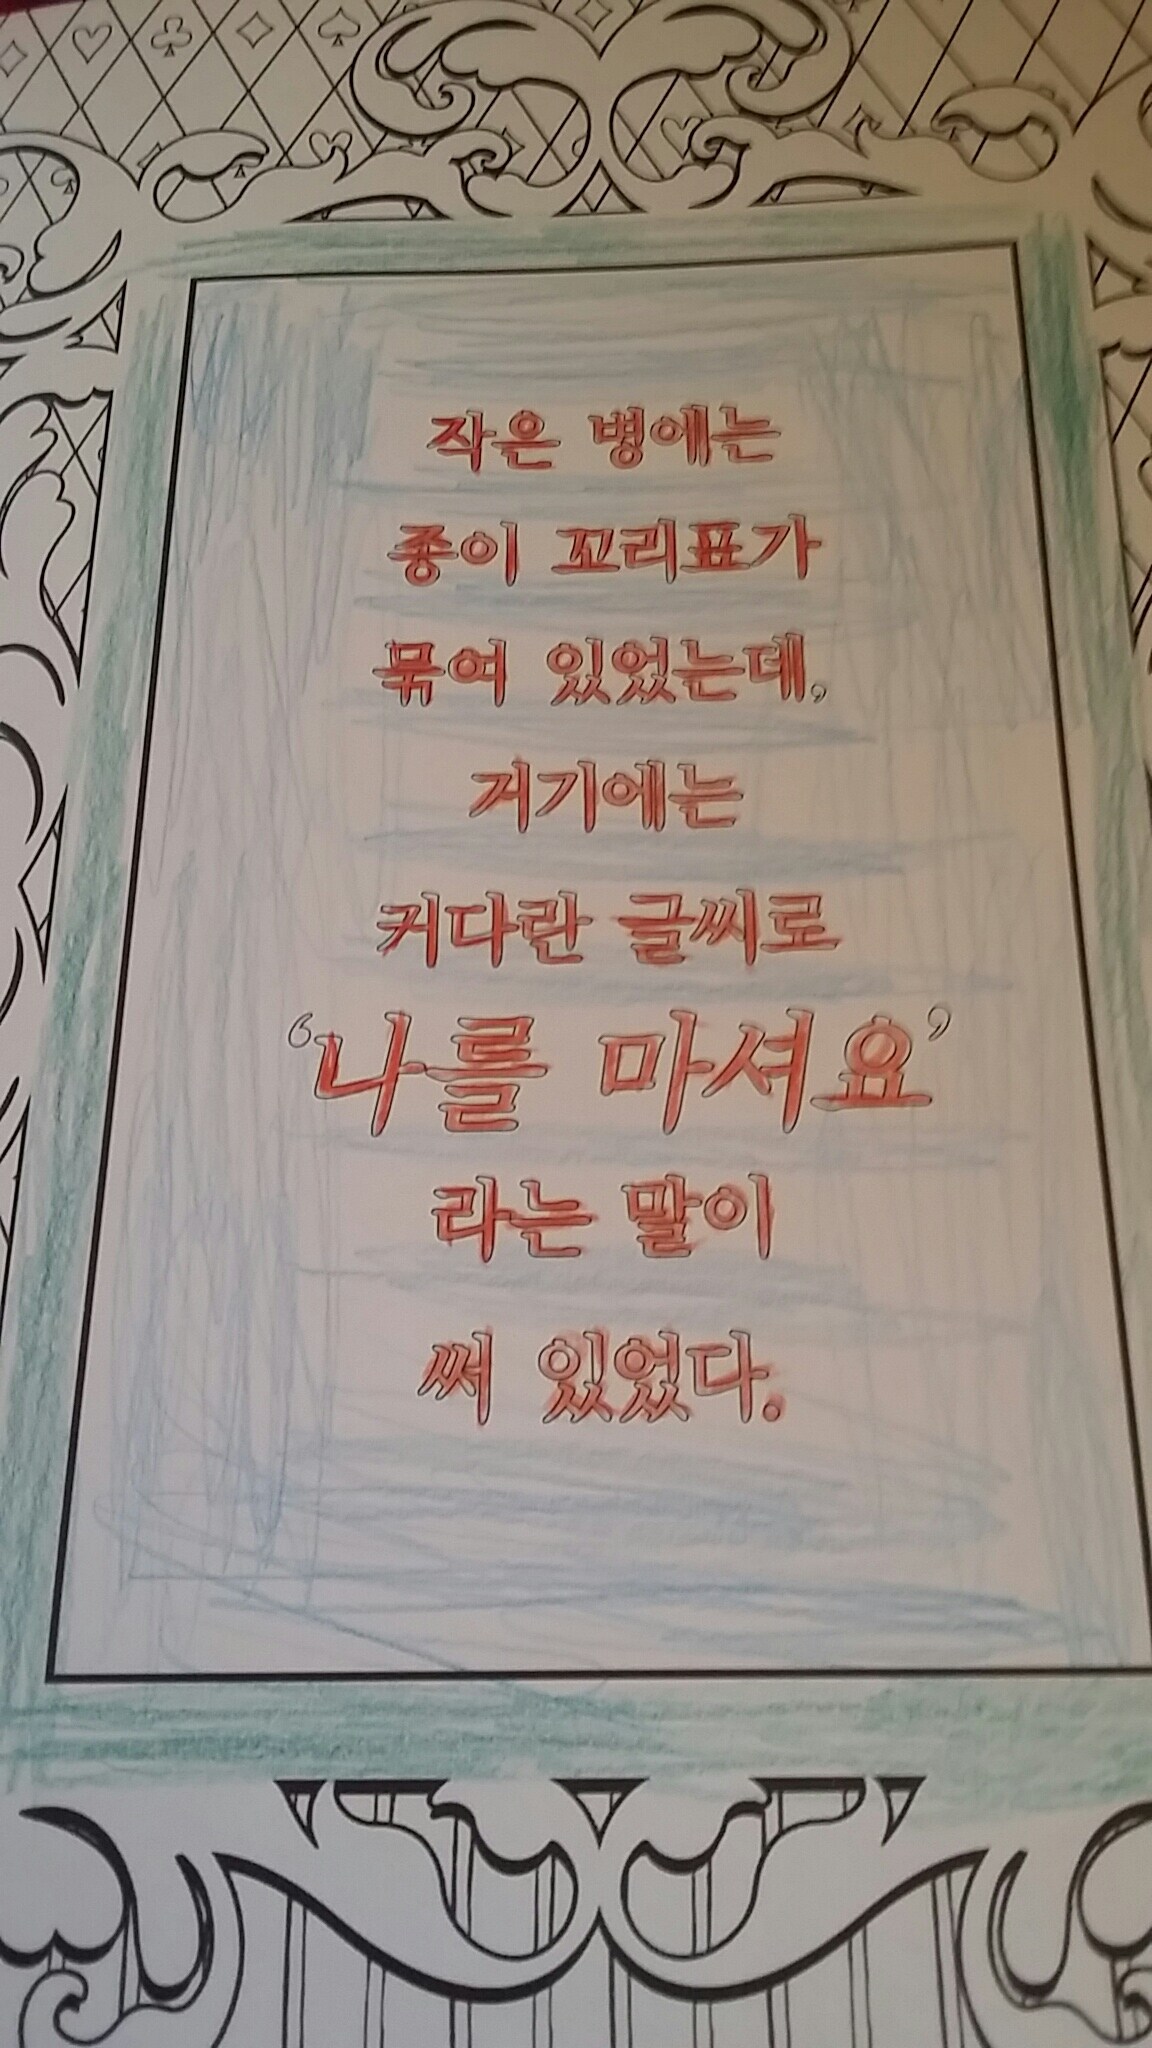 작은 병에는
종이 꼬리표가
묶여 있었는데,
거기에는
커다란 글씨로
‘나를 마셔요’
라는 말이
써 있었다.